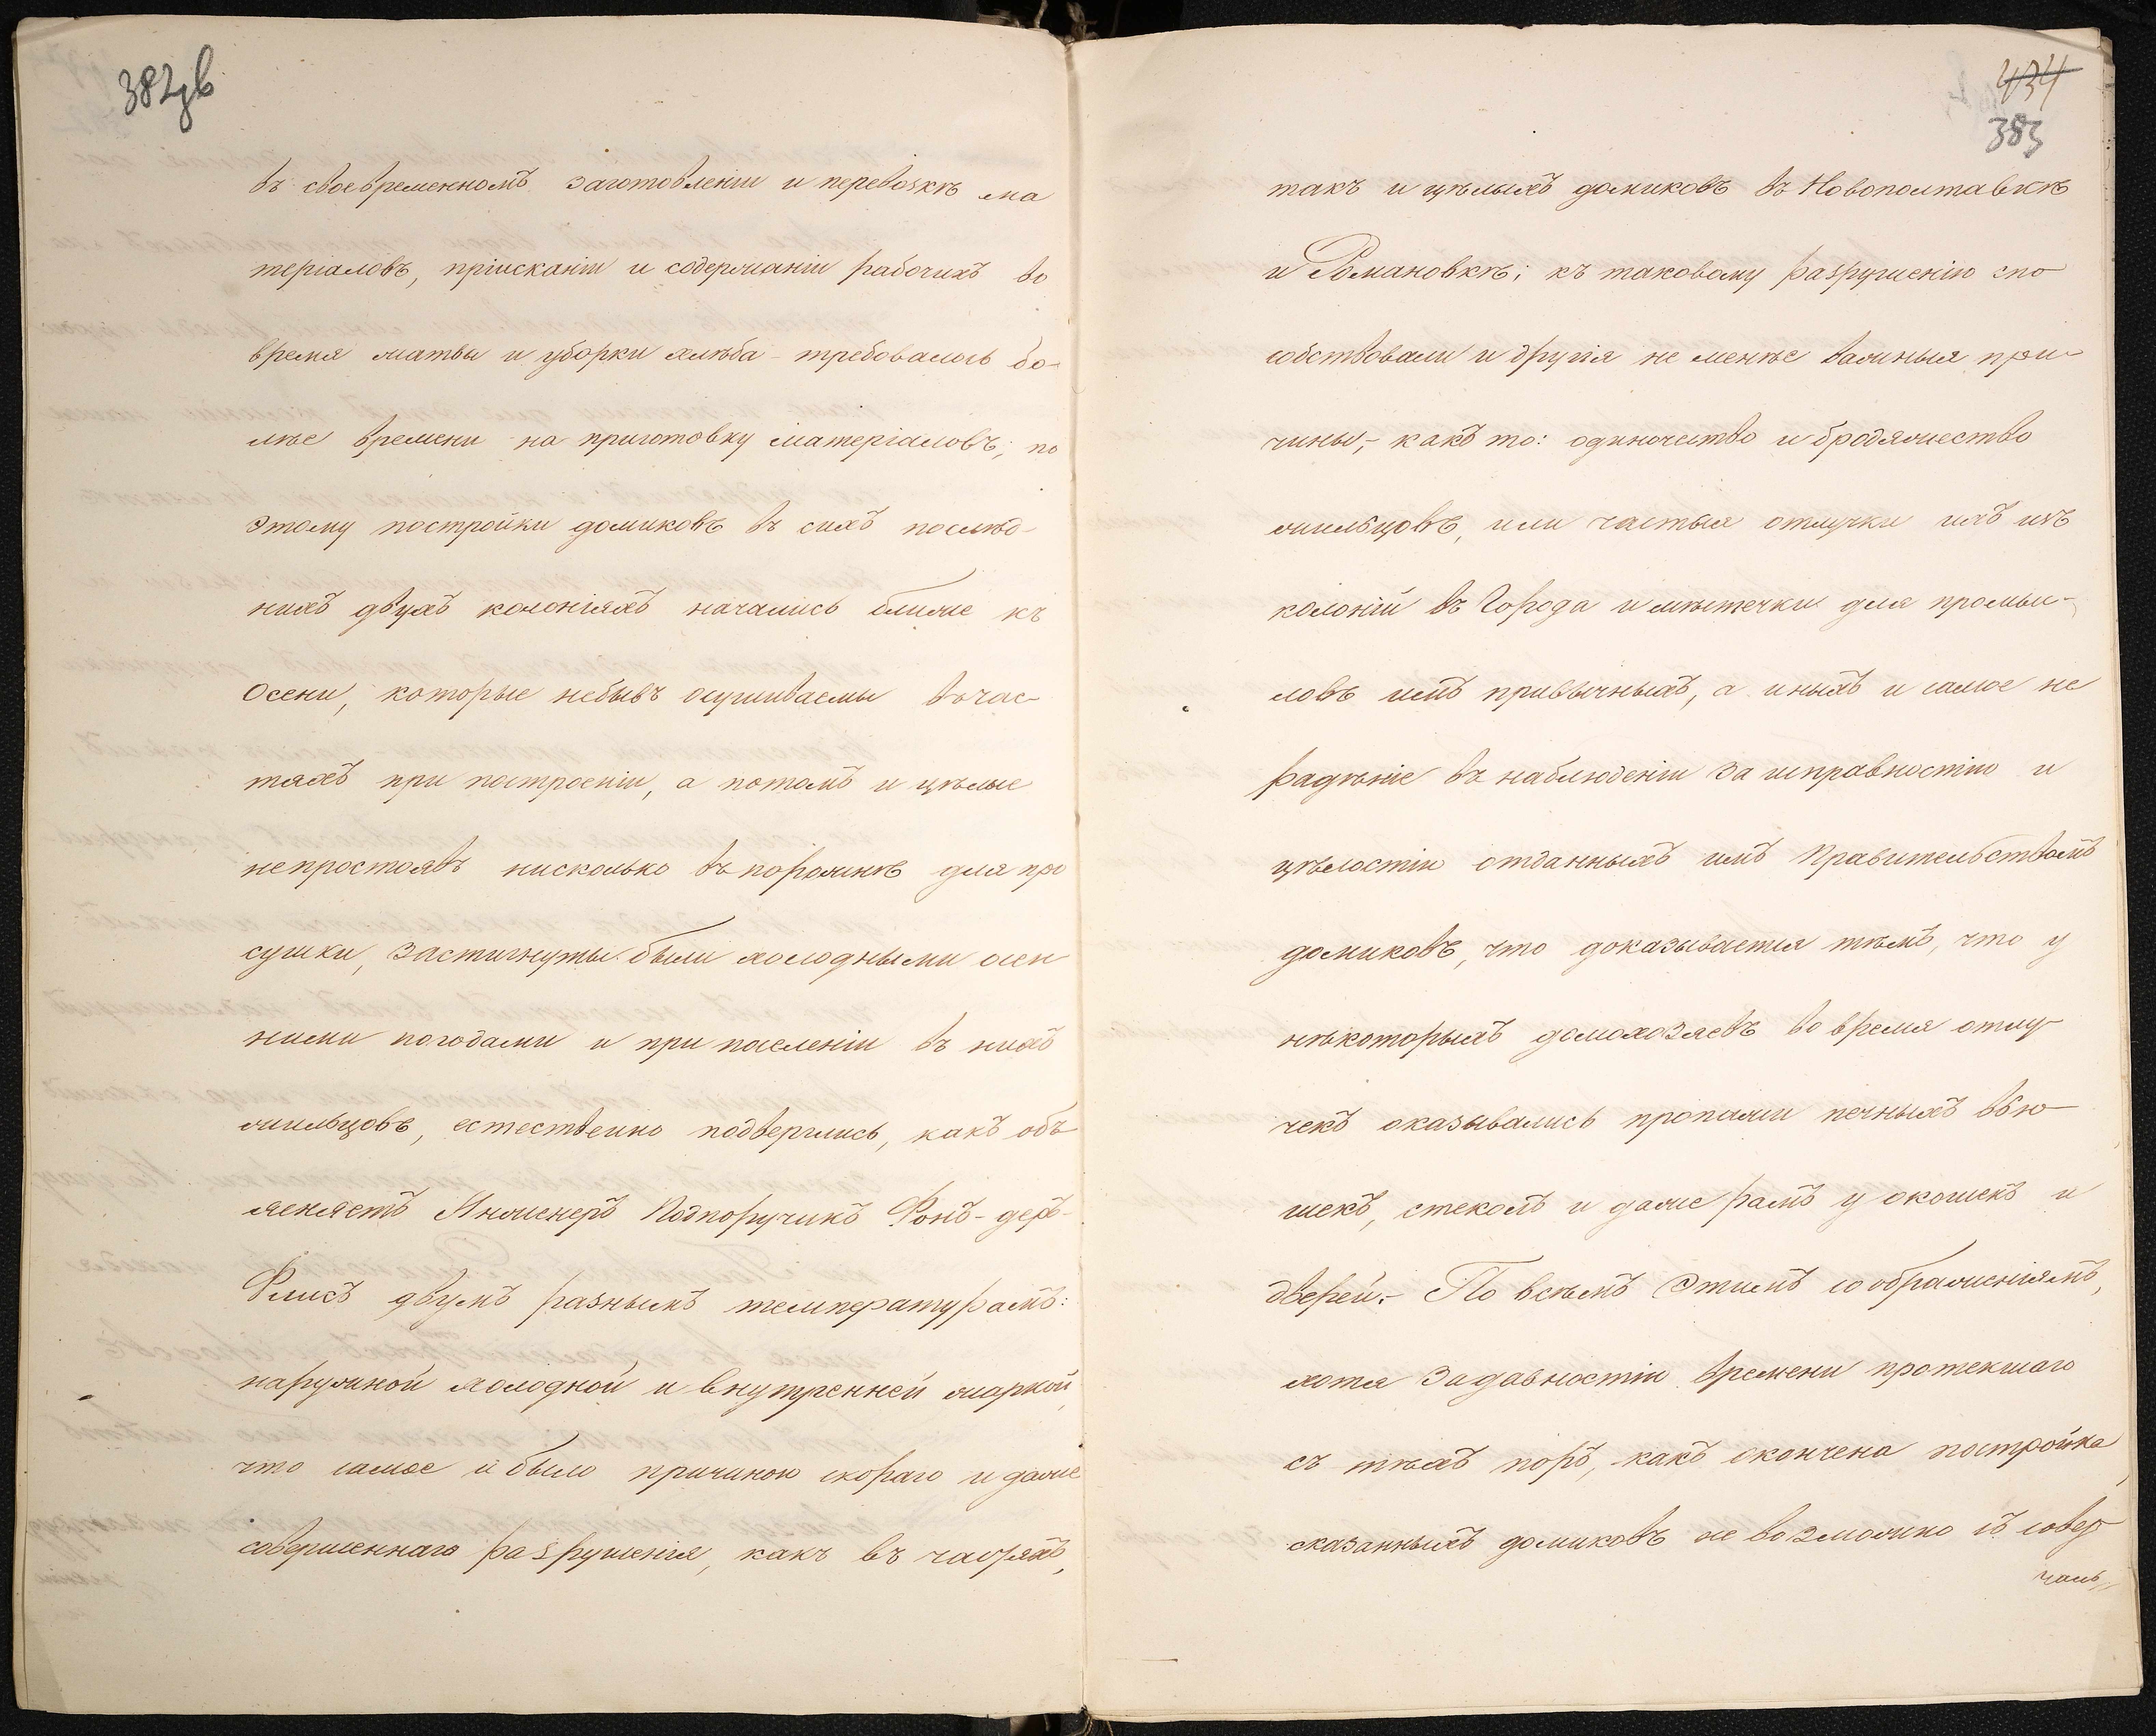 382зв
въ своевременномъ заготовленіи и перевозкѣ ма
теріаловъ, пріисканіи и содержаніи рабочихъ во
время жатвы и уборки хлѣба - требовалось бо-
лѣе времени на приготовку матеріаловъ; по
этому постройки домиковъ въ сихъ послѣд-
нихъ двухъ колоніяхъ начались ближе къ
Осени, которые небывъ осушиваемы въ час-
тяхъ при построеніи, а потомъ и цѣлые
непростоявъ нисколько въ порожнѣ для про
сушки, застигнуты были холодными осен
ними погодами и при поселеніи въ нихъ
жильцовъ, естественно подверглись, какъ объ
ясняетъ Инженеръ Подпоручикъ Фонъ-деръ-
Флисъ двумъ разнымъ температурамъ:
наружной холодной и внутренней жаркой,
что самое и было причиною скораго и даже
совершеннаго разрушенія, какъ въ частяхъ,
434
383
такъ и цѣлыхъ домиковъ въ Новополтавкѣ
и Романовкѣ; къ таковому разрушенію спо
собствовали и другія не менѣе важныя при-
чины,- какъ то: одиночество и бродяжество
жильцовъ, или частыя отлучки ихъ изъ
колоній въ Города и мѣстечки для промы-
ловъ имъ привычныхъ, а иныхъ и самое не
радѣніе въ наблюденіи за исправностію и
цѣлостію отданныхъ имъ Правительствомъ
домиковъ, что доказывается тѣмъ, что у
нѣкоторыхъ домохозяевъ во время отлу-
чекъ оказывались пропажи печныхъ вью-
шекъ, стеколъ и даже рамъ у окошекъ и
дверей.- По всѣмъ этимъ соображеніямъ,
хотя за давностію времени протекшаго
съ тѣхъ поръ, какъ окончена постройка
сказанныхъ домиковъ не возможно съ совер
шень„